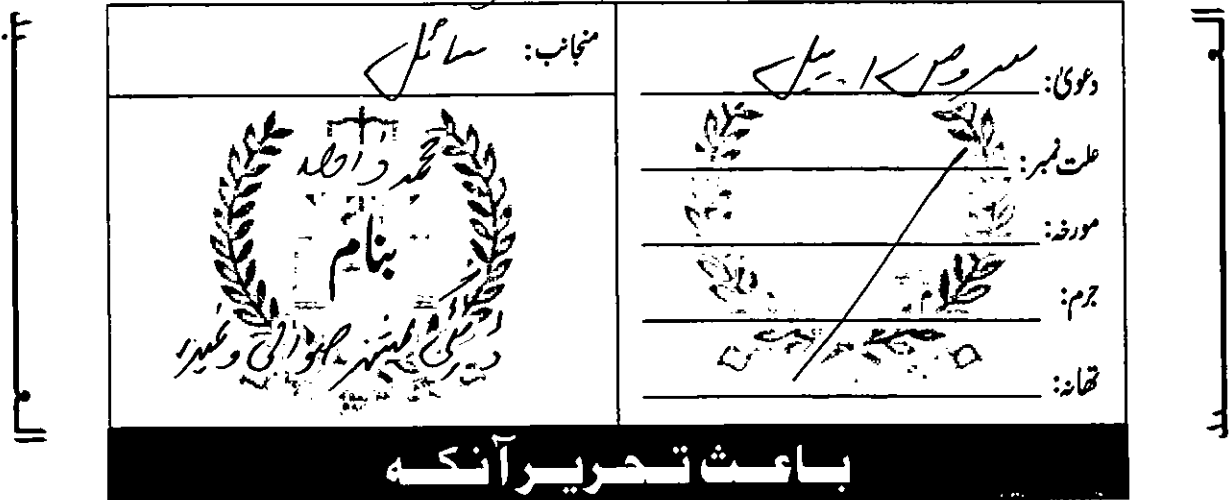 دعویٰ: سروس اپیل
علت نمبر:
مورخہ:
جرم:
تھانہ:
منجانب: سائل
محمد واحد
بنام
ڈپٹی کمشنر صوابی وغیرہ
باعث تحریر آنکہ